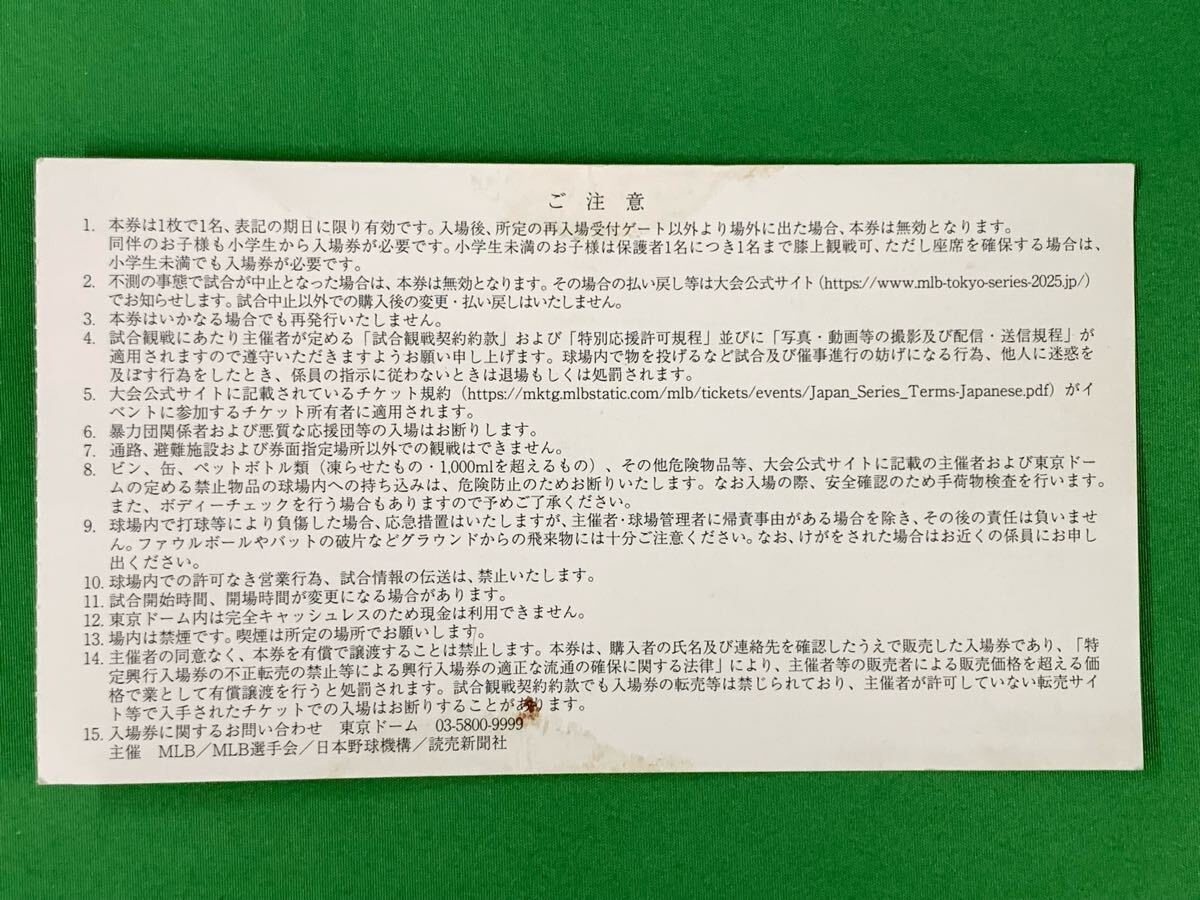 ご注意
1. 本券は1枚で1名、表記の期日に限り有効です。入場後、所定の再入場受付ゲート以外より場外に出た場合、本券は無効となります。
同伴のお子様も小学生から入場券が必要です。小学生未満のお子様は保護者1名につき1名まで膝上観戦可、ただし座席を確保する場合は、
小学生未満でも入場券が必要です。
2. 不測の事態で試合が中止となった場合は、本券は無効となります。その場合の払い戻し等は大会公式サイト(https://www.mlb-tokyo-series-2025.jp/)
でお知らせします。試合中止以外での購入後の変更・払い戻しはいたしません。
3. 本券はいかなる場合でも再発行いたしません。
4. 試合観戦にあたり主催者が定める「試合観戦契約約款」および「特別応援許可規程」並びに「写真・動画等の撮影及び配信・送信規程」が
適用されますので遵守いただきますようお願い申し上げます。球場内で物を投げるなど試合及び催事進行の妨げになる行為、他人に迷惑を
及ぼす行為をしたとき、係員の指示に従わないときは退場もしくは処罰されます。
5. 大会公式サイトに記載されているチケット規約(https://mktg.mlbstatic.com/mlb/tickets/events/Japan_Series_Terms-Japanese.pdf)がイ
ベントに参加するチケット所有者に適用されます。
6. 暴力団関係者および悪質な応援団等の入場はお断りします。
7. 通路、避難施設および券面指定場所以外での観戦はできません。
8. ビン、缶、ペットボトル類(凍らせたもの・1,000mlを超えるもの)、その他危険物品等、大会公式サイトに記載の主催者および東京ドー
ムの定める禁止物品の球場内への持ち込みは、危険防止のためお断りいたします。なお入場の際、安全確認のため手荷物検査を行います。
また、ボディーチェックを行う場合もありますので予めご了承ください。
9. 球場内で打球等により負傷した場合、応急措置はいたしますが、主催者・球場管理者に帰責事由がある場合を除き、その後の責任は負いませ
ん。ファウルボールやバットの破片などグラウンドからの飛来物には十分ご注意ください。なお、けがをされた場合はお近くの係員にお申し
出ください。
10. 球場内での許可なき営業行為、試合情報の伝送は、禁止いたします。
11. 試合開始時間、開場時間が変更になる場合があります。
12. 東京ドーム内は完全キャッシュレスのため現金は利用できません。
13. 場内は禁煙です。喫煙は所定の場所でお願いします。
14. 主催者の同意なく、本券を有償で譲渡することは禁止します。本券は、購入者の氏名及び連絡先を確認したうえで販売した入場券であり、「特
定興行入場券の不正転売の禁止等による興行入場券の適正な流通の確保に関する法律」により、主催者等の販売者による販売価格を超える価
格で業として有償譲渡を行うと処罰されます。試合観戦契約約款でも入場券の転売等は禁じられており、主催者が許可していない転売サイ
ト等で入手されたチケットでの入場はお断りすることがあります。
15. 入場券に関するお問い合わせ 東京ドーム 03-5800-9999
主催 MLB/MLB選手会/日本野球機構/読売新聞社